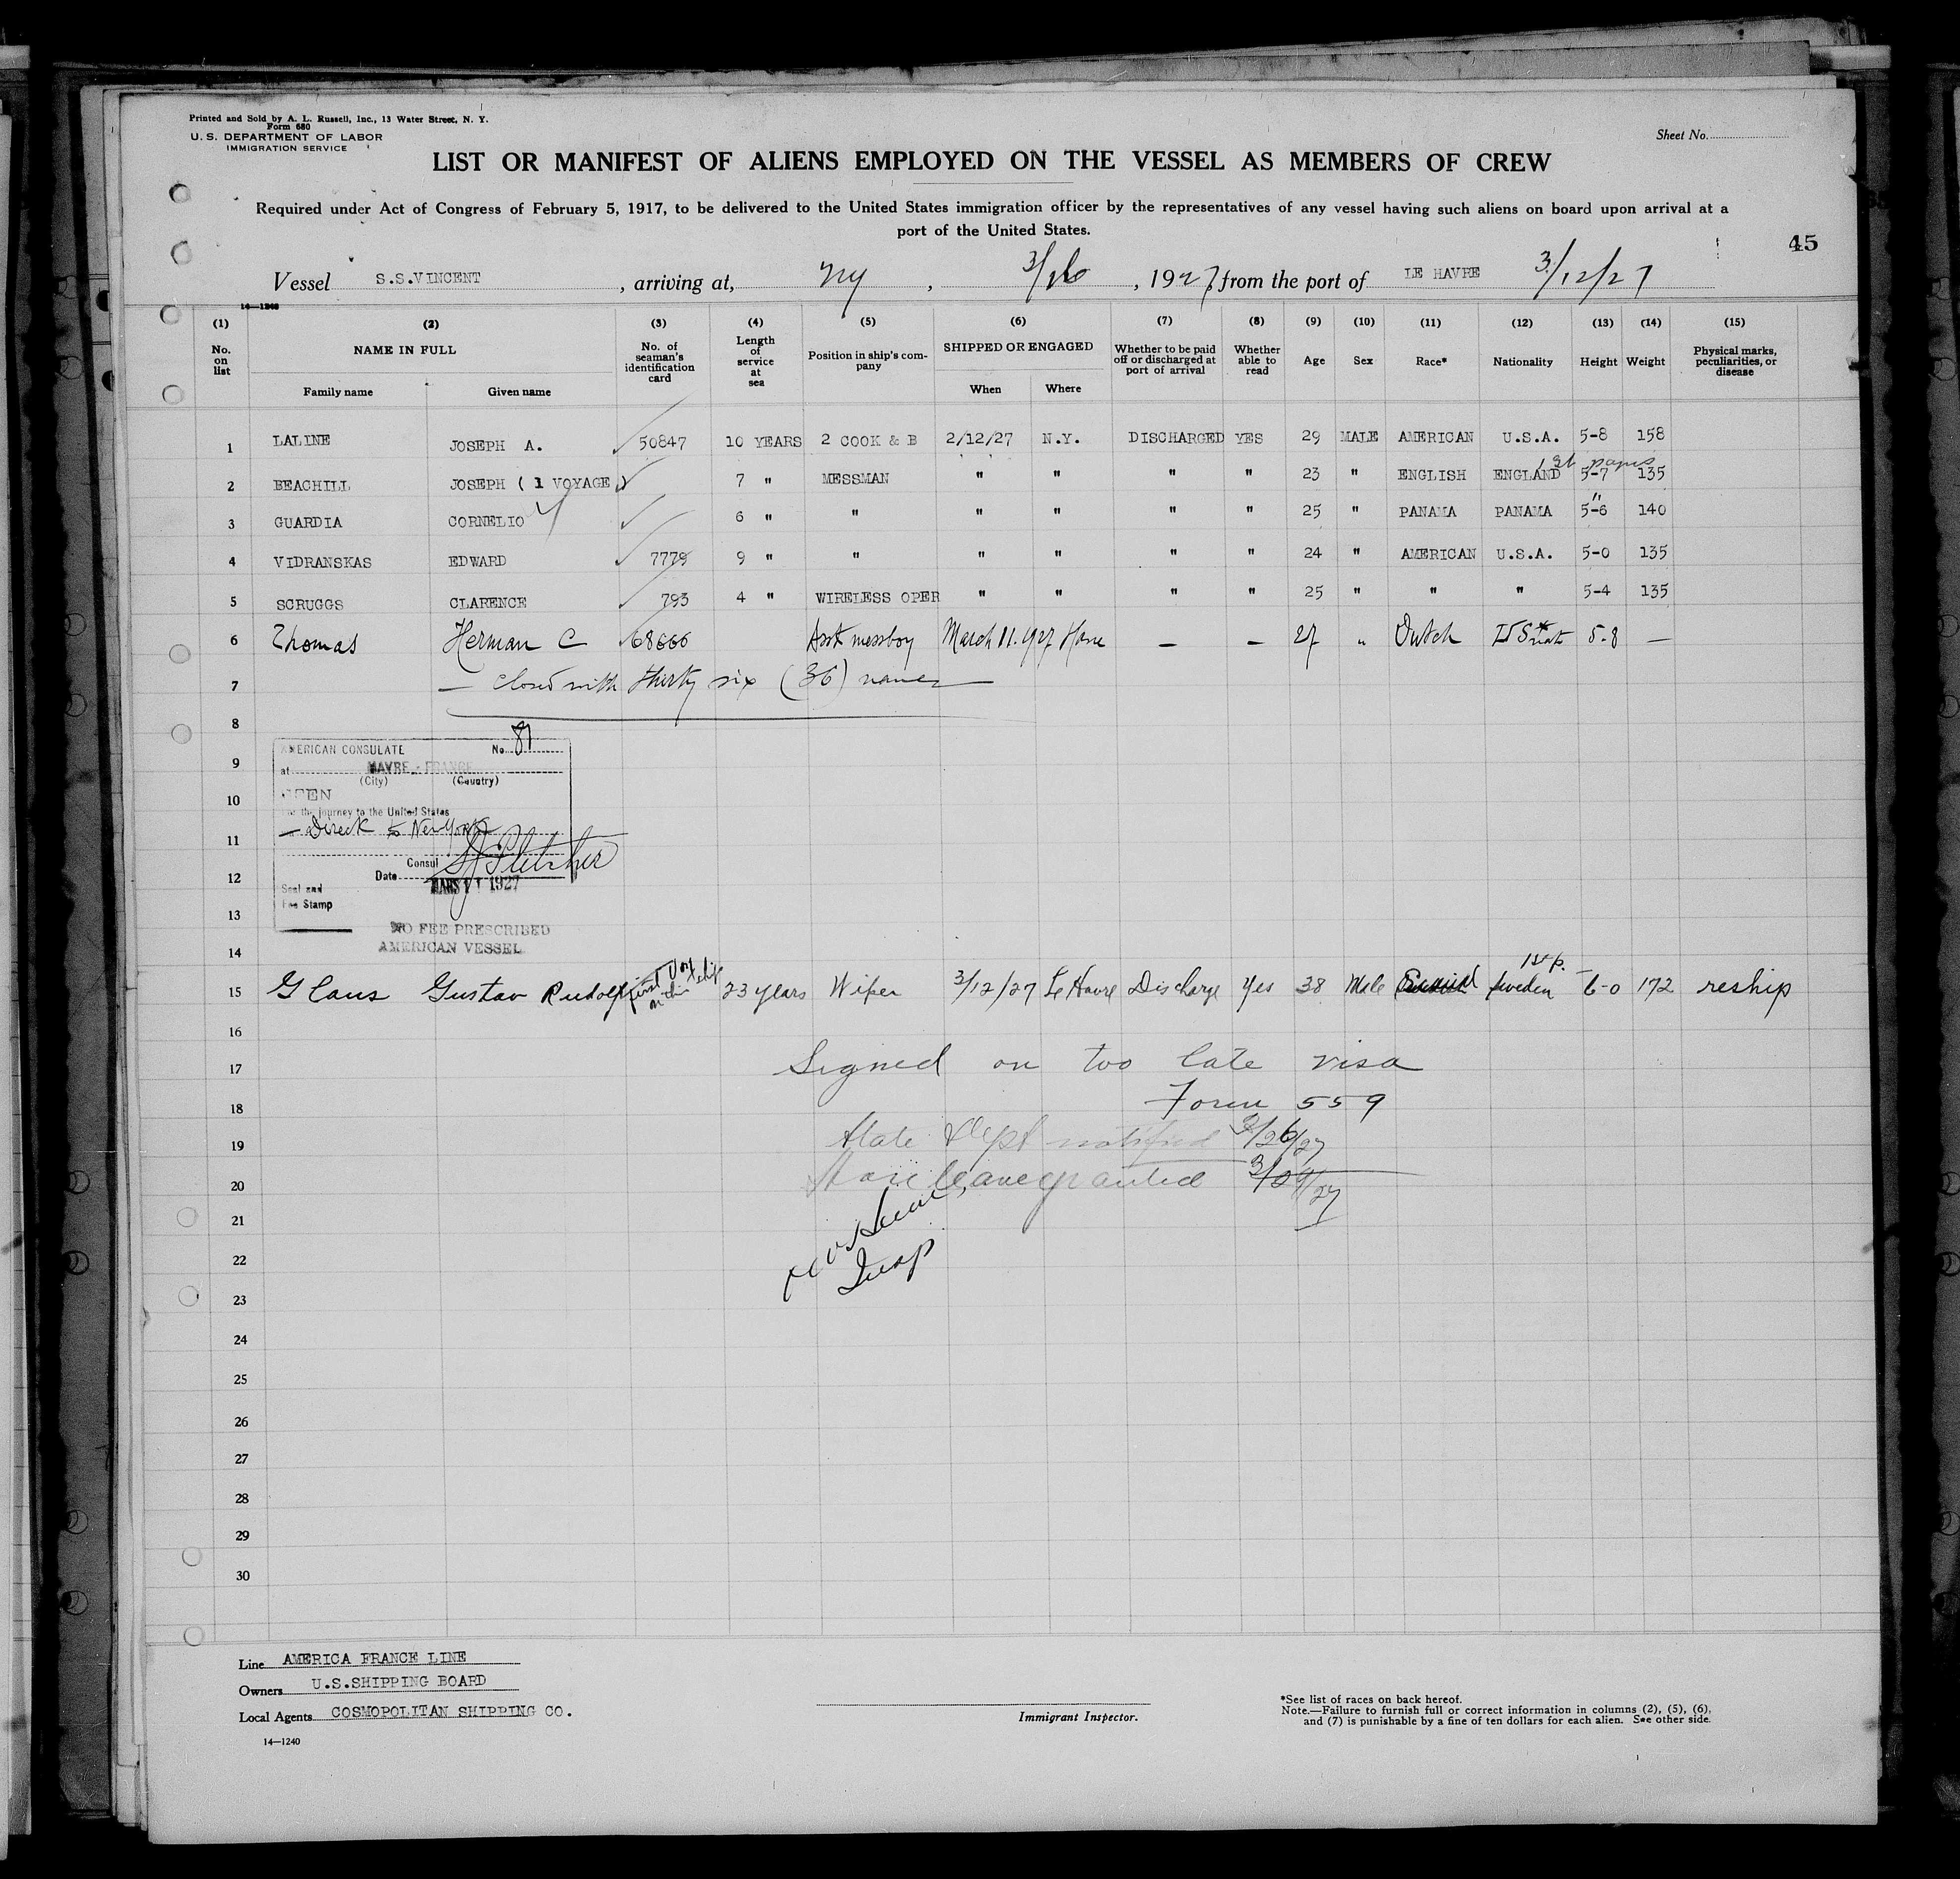 Printed and Sold by A. L. Russell, Inc., 13 Water Street, N. Y.
Form 680
U. S. DEPARTMENT OF LABOR
IMMIGRATION SERVICE
Sheet No.
LIST OR MANIFEST OF ALIENS EMPLOYED ON THE VESSEL AS MEMBERS OF CREW
Required under Act of Congress of February 5, 1917, to be delivered to the United States immigration officer by the representatives of any vessel having such aliens on board upon arrival at a
port of the United States.
45
Vessel S.S.VINCENT, arriving at, NY, 3/26, 1927, from the port of LE HAVRE 3/12/27
14—1240
(1) (2) (3) (4) (5) (6) (7) (8) (9) (10) (11) (12) (13) (14) (15)
No. on list NAME IN FULL Family name Given name No. of seaman's identification card Length of service at sea Position in ship's company SHIPPED OR ENGAGED When Where Whether to be paid off or discharged at port of arrival Whether able to read Age Sex Race* Nationality Height Weight Physical marks, peculiarities, or disease
1 LALINE JOSEPH A. 50847 10 YEARS 2 COOK & B 2/12/27 N.Y. DISCHARGED YES 29 MALE AMERICAN U.S.A. 5-8 158
1st papers
2 BEACHILL JOSEPH ( 1 VOYAGE ) 7 " MESSMAN " " " " 23 " ENGLISH ENGLAND 5-7 135
"
3 GUARDIA CORNELIO 6 " " " " " " 25 " PANAMA PANAMA 5-6 140
4 VIDRANSKAS EDWARD 7779 9 " " " " " " 24 " AMERICAN U.S.A. 5-0 135
5 SCRUGGS CLARENCE 793 4 " WIRELESS OPER " " " " 25 " " " 5-4 135
6 Thomas Herman C 68666 Asst messboy March 11. 1927 Havre — — 27 " Dutch US nat 5-8 —
7 — Closed with thirty six (36) names —
8
9
10
11
12
13
14
AMERICAN CONSULATE No. 87
at HAVRE - FRANCE
(City) (Country)
SEEN
For the journey to the United States
— Direct to New York
Consul
Date MARS 11 1927
Seal and
Fee Stamp
NO FEE PRESCRIBED
AMERICAN VESSEL
1st p.
15 Glans Gustav Rudolf first Voy on this ship 23 years Wiper 3/12/27 Le Havre Discharge Yes 38 Male Sweden 6-0 172 reship
16
17 Signed on too late visa
18 Form 559
19 State Dept notified 3/26/27
20 leave granted
21
22 Insp
23
24
25
26
27
28
29
30
Line AMERICA FRANCE LINE
Owners U.S.SHIPPING BOARD
Local Agents COSMOPOLITAN SHIPPING CO.
14—1240
Immigrant Inspector.
*See list of races on back hereof.
Note.—Failure to furnish full or correct information in columns (2), (5), (6),
and (7) is punishable by a fine of ten dollars for each alien. See other side.